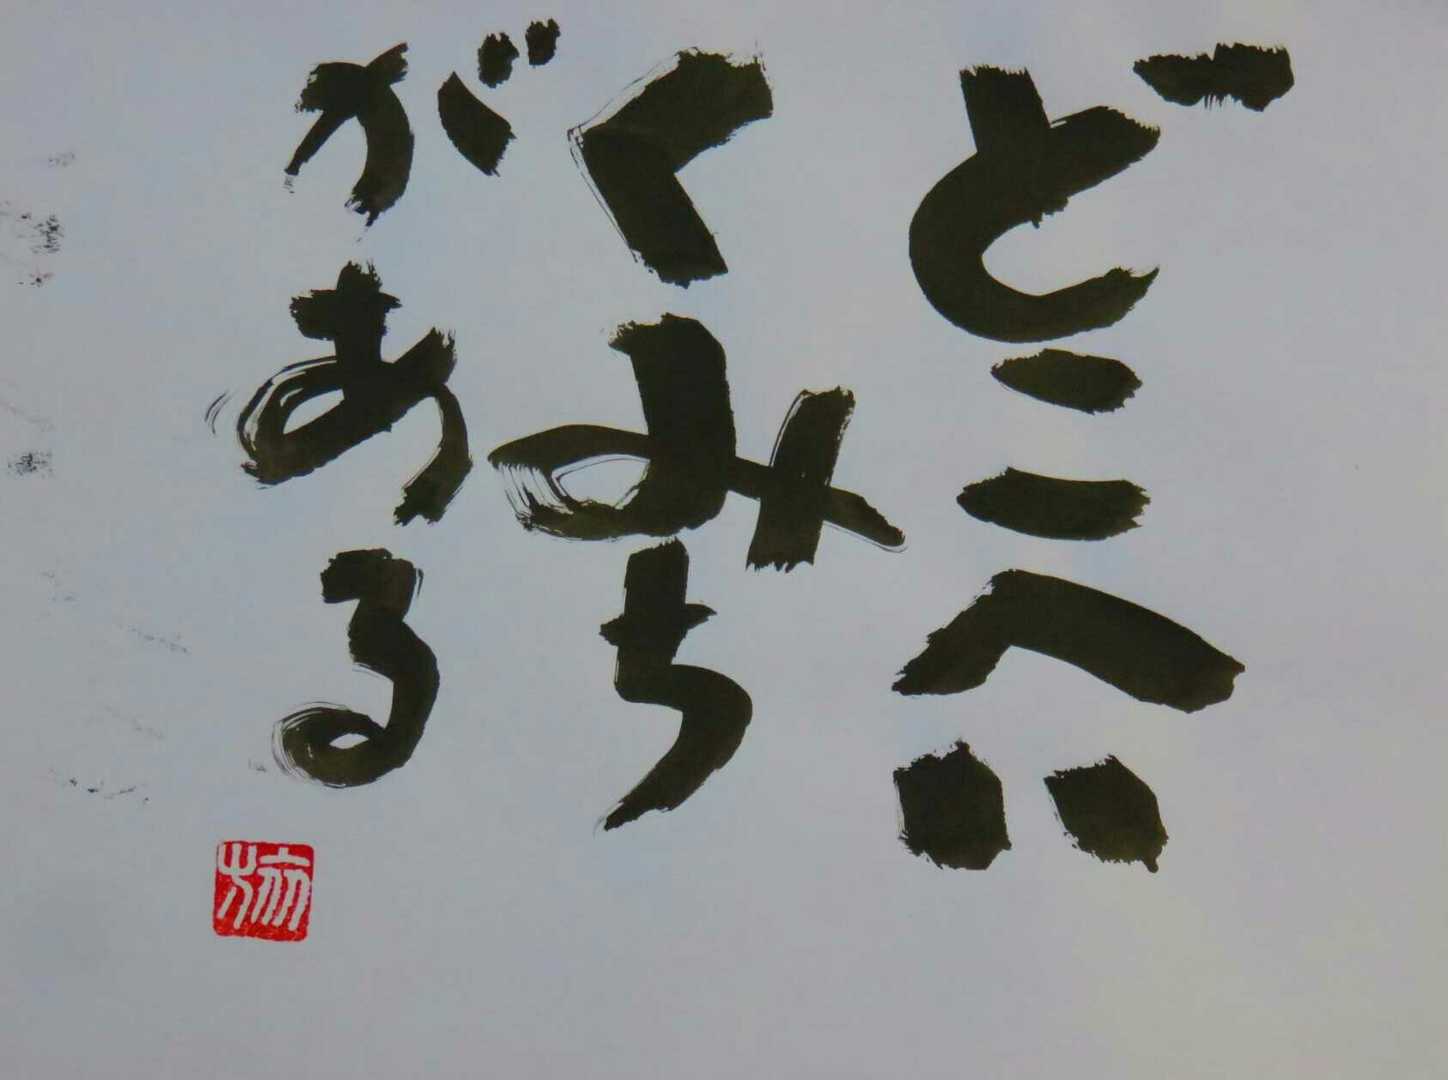 どこへい
くみち
がある